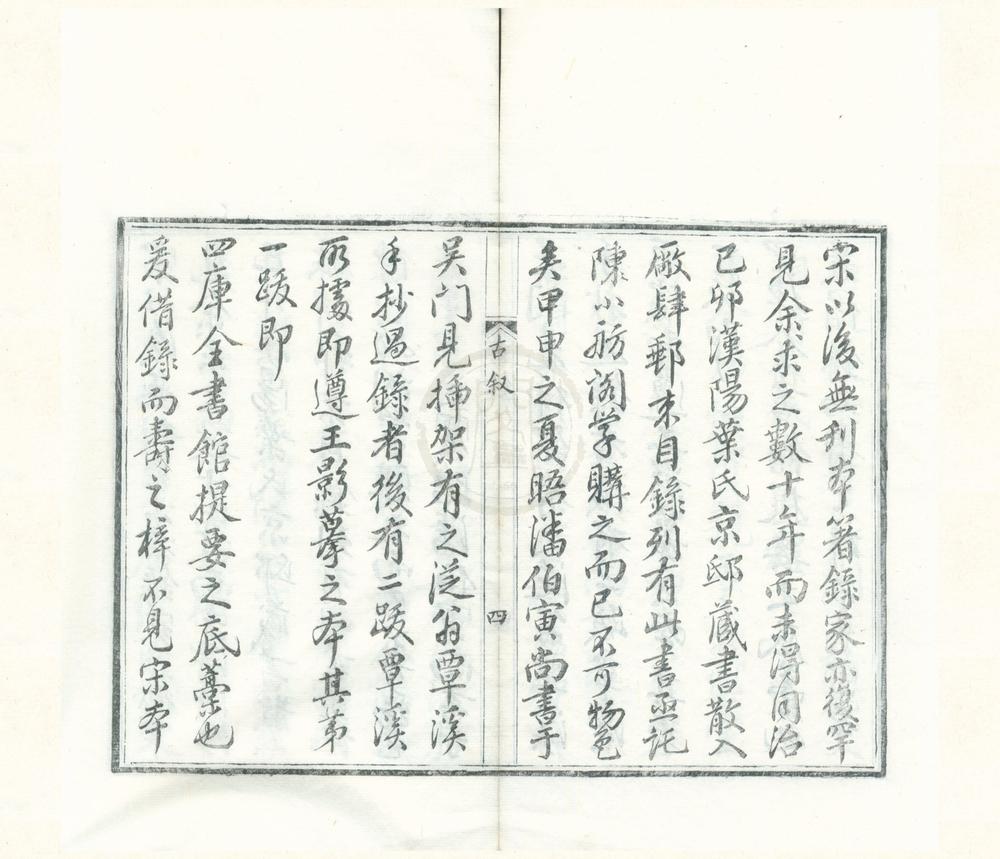 宋以後無刊本著錄家亦復罕
見余求之數十年而未得同治
己卯漢陽葉氏京邸藏書散入
廠肆郵來目錄列有此書亟託
陳小舫閣學購之而已不可物色
矣甲申之夏晤潘伯寅尚書于
古叙
四
吴门見插架有之從翁覃溪
手抄過錄者後有二跋覃溪
所據即遵王影摹之本其第
一跋即
四庫全書館提要之底藁也
爰借錄而壽之梓不見宋本